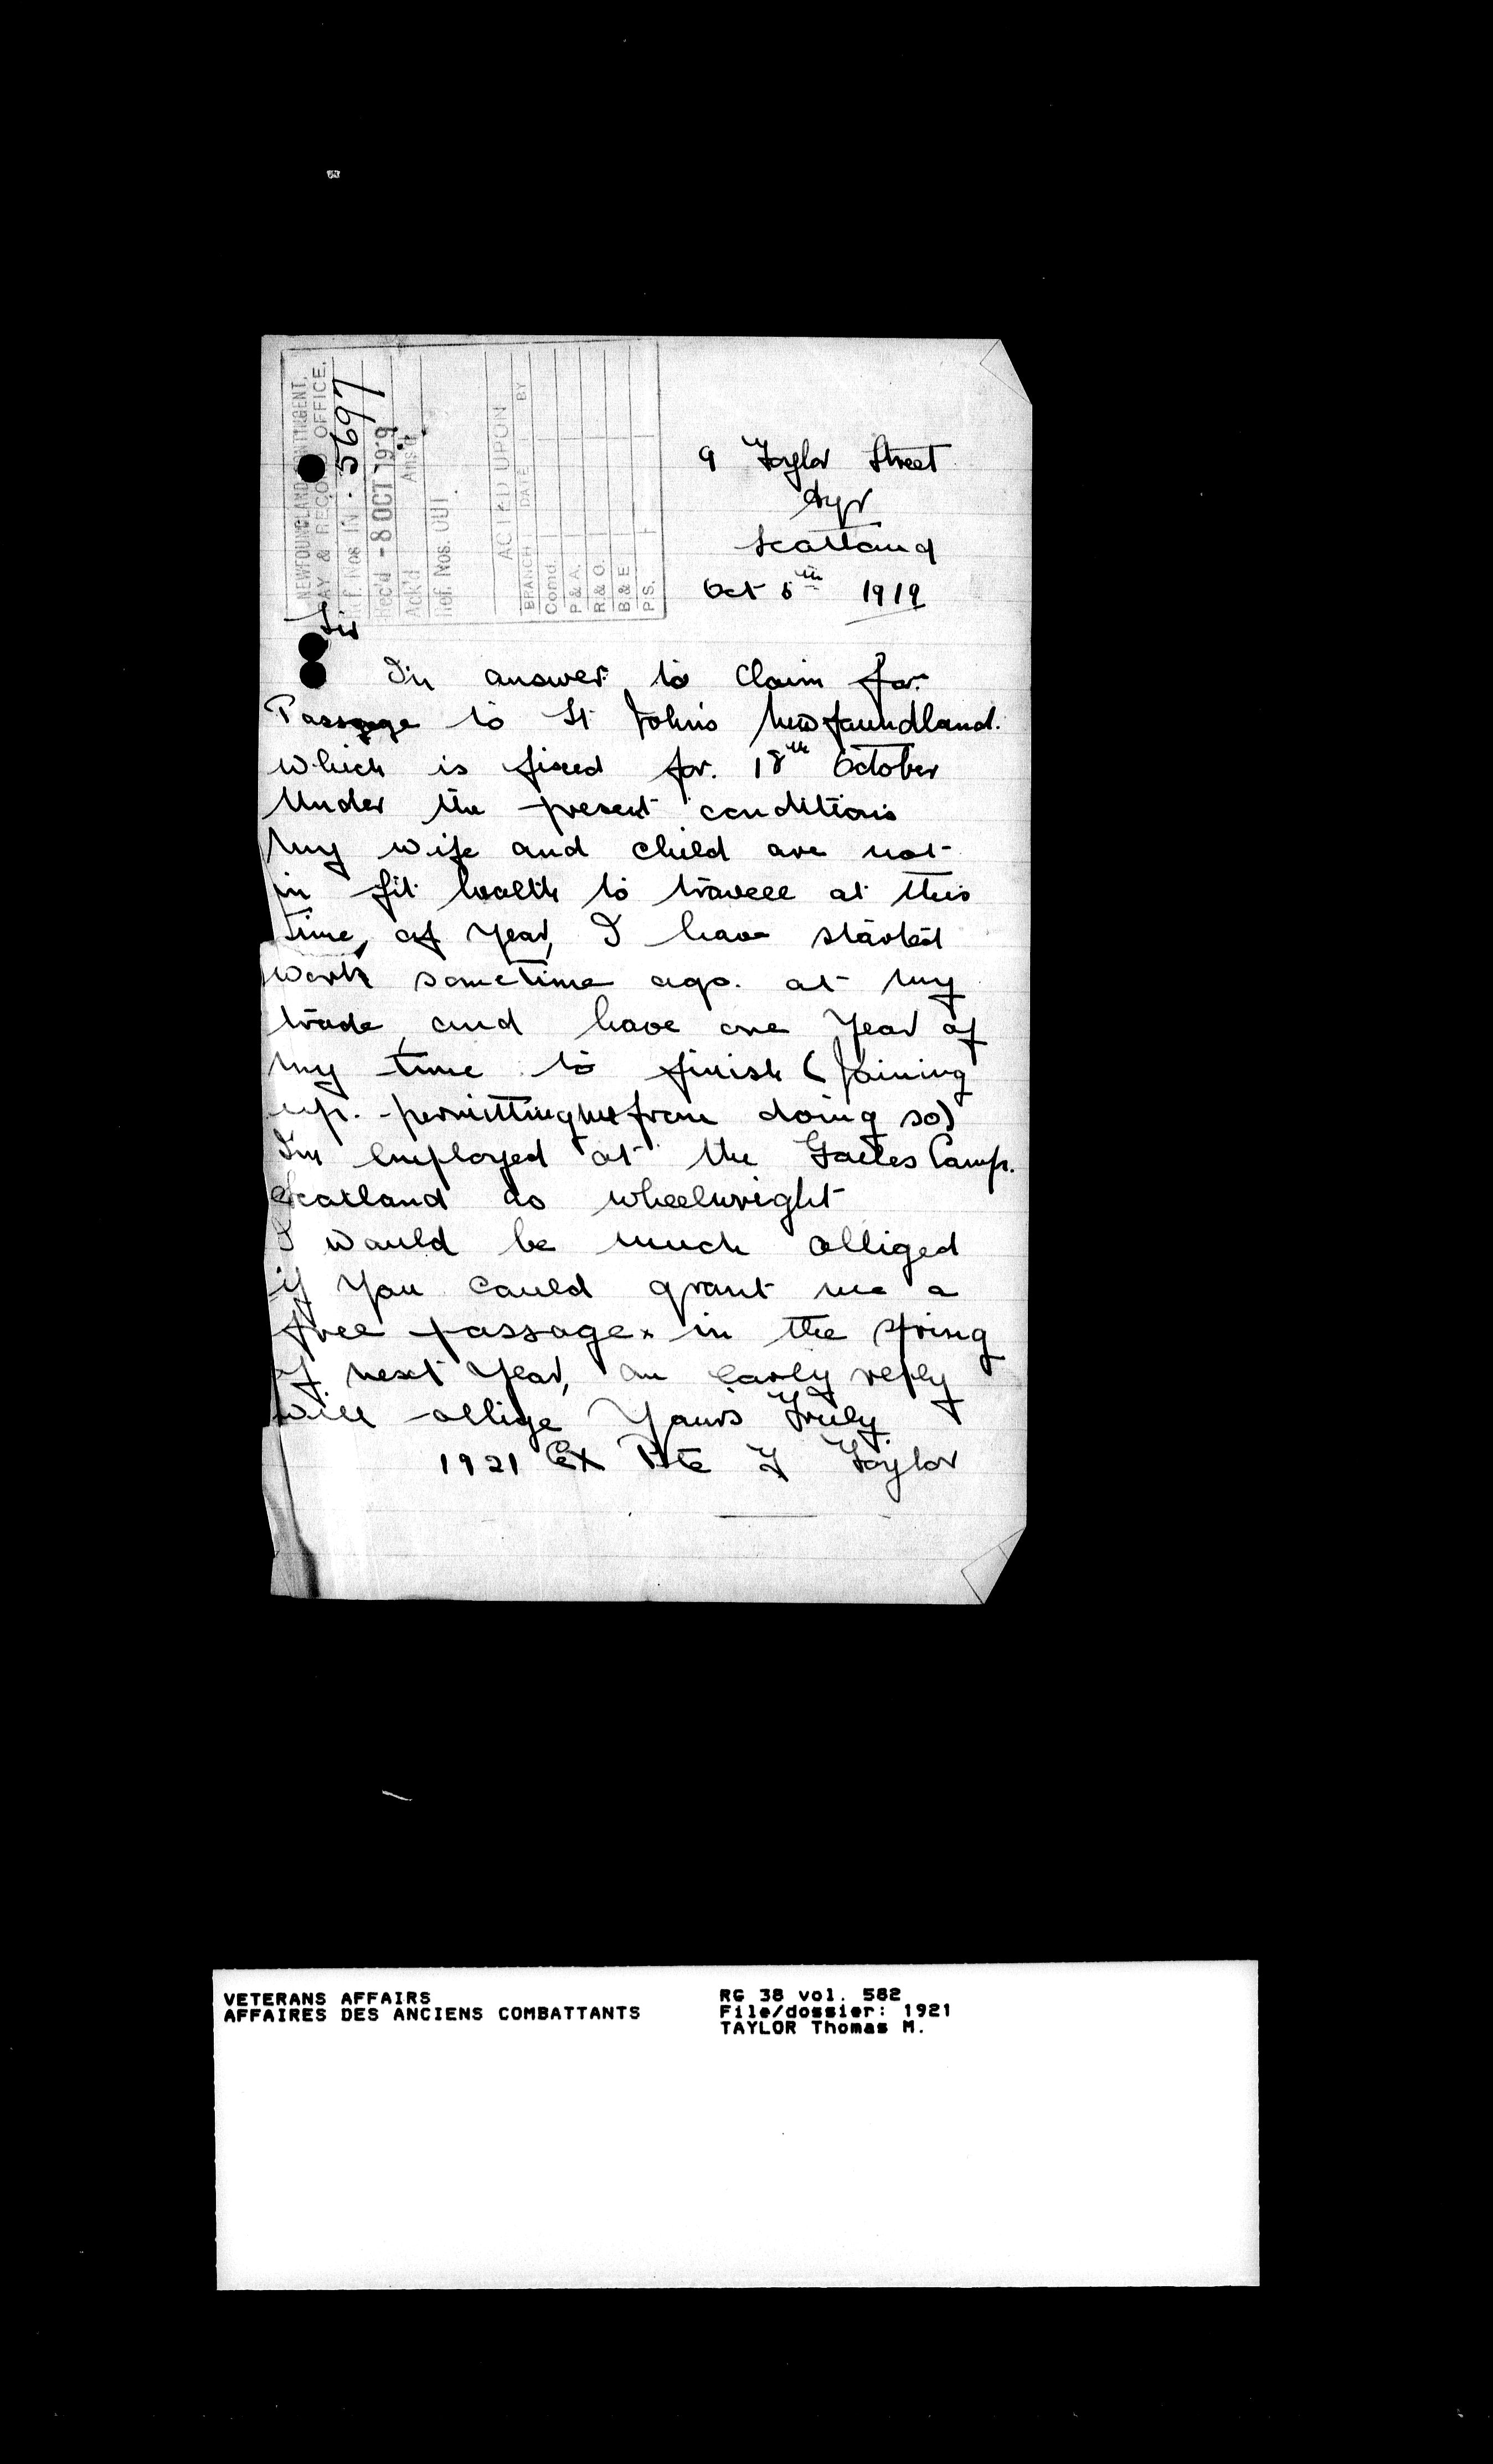 NEWFOUNDLAND CONTINGENT,
PAY & RECORD OFFICE.
Ref. Nos IN . 5697
Rec'd -8 OCT 1919
Ack'd Ans'd
Ref. Nos. OUT
ACTED UPON
BRANCH DATE BY
Comd.
P & A.
R & O.
B & E
P.S.
9 Taylor Street
Ayr
Scotland
Oct 5th 1919
Sir
In answer to Claim for.
Passage to St John's Newfoundland.
which is fixed for. 18th October
Under the present conditions
my wife and child are not
in fit health to travell at this
time, of year, I have started
work sometime ago. at my
trade, and have one Year of
my time to finish (Joining
up. permitting me from doing so)
I'm Employed at the Gailes Camp.
Scotland as wheelwright
I would be much obliged
if You could grant me a
free passage. in the spring
of next Year, an early reply
will oblige Yours Truly.
1921 Ex Pte T Taylor
VETERANS AFFAIRS
AFFAIRES DES ANCIENS COMBATTANTS
RG 38 vol. 582
File/dossier: 1921
TAYLOR Thomas M.